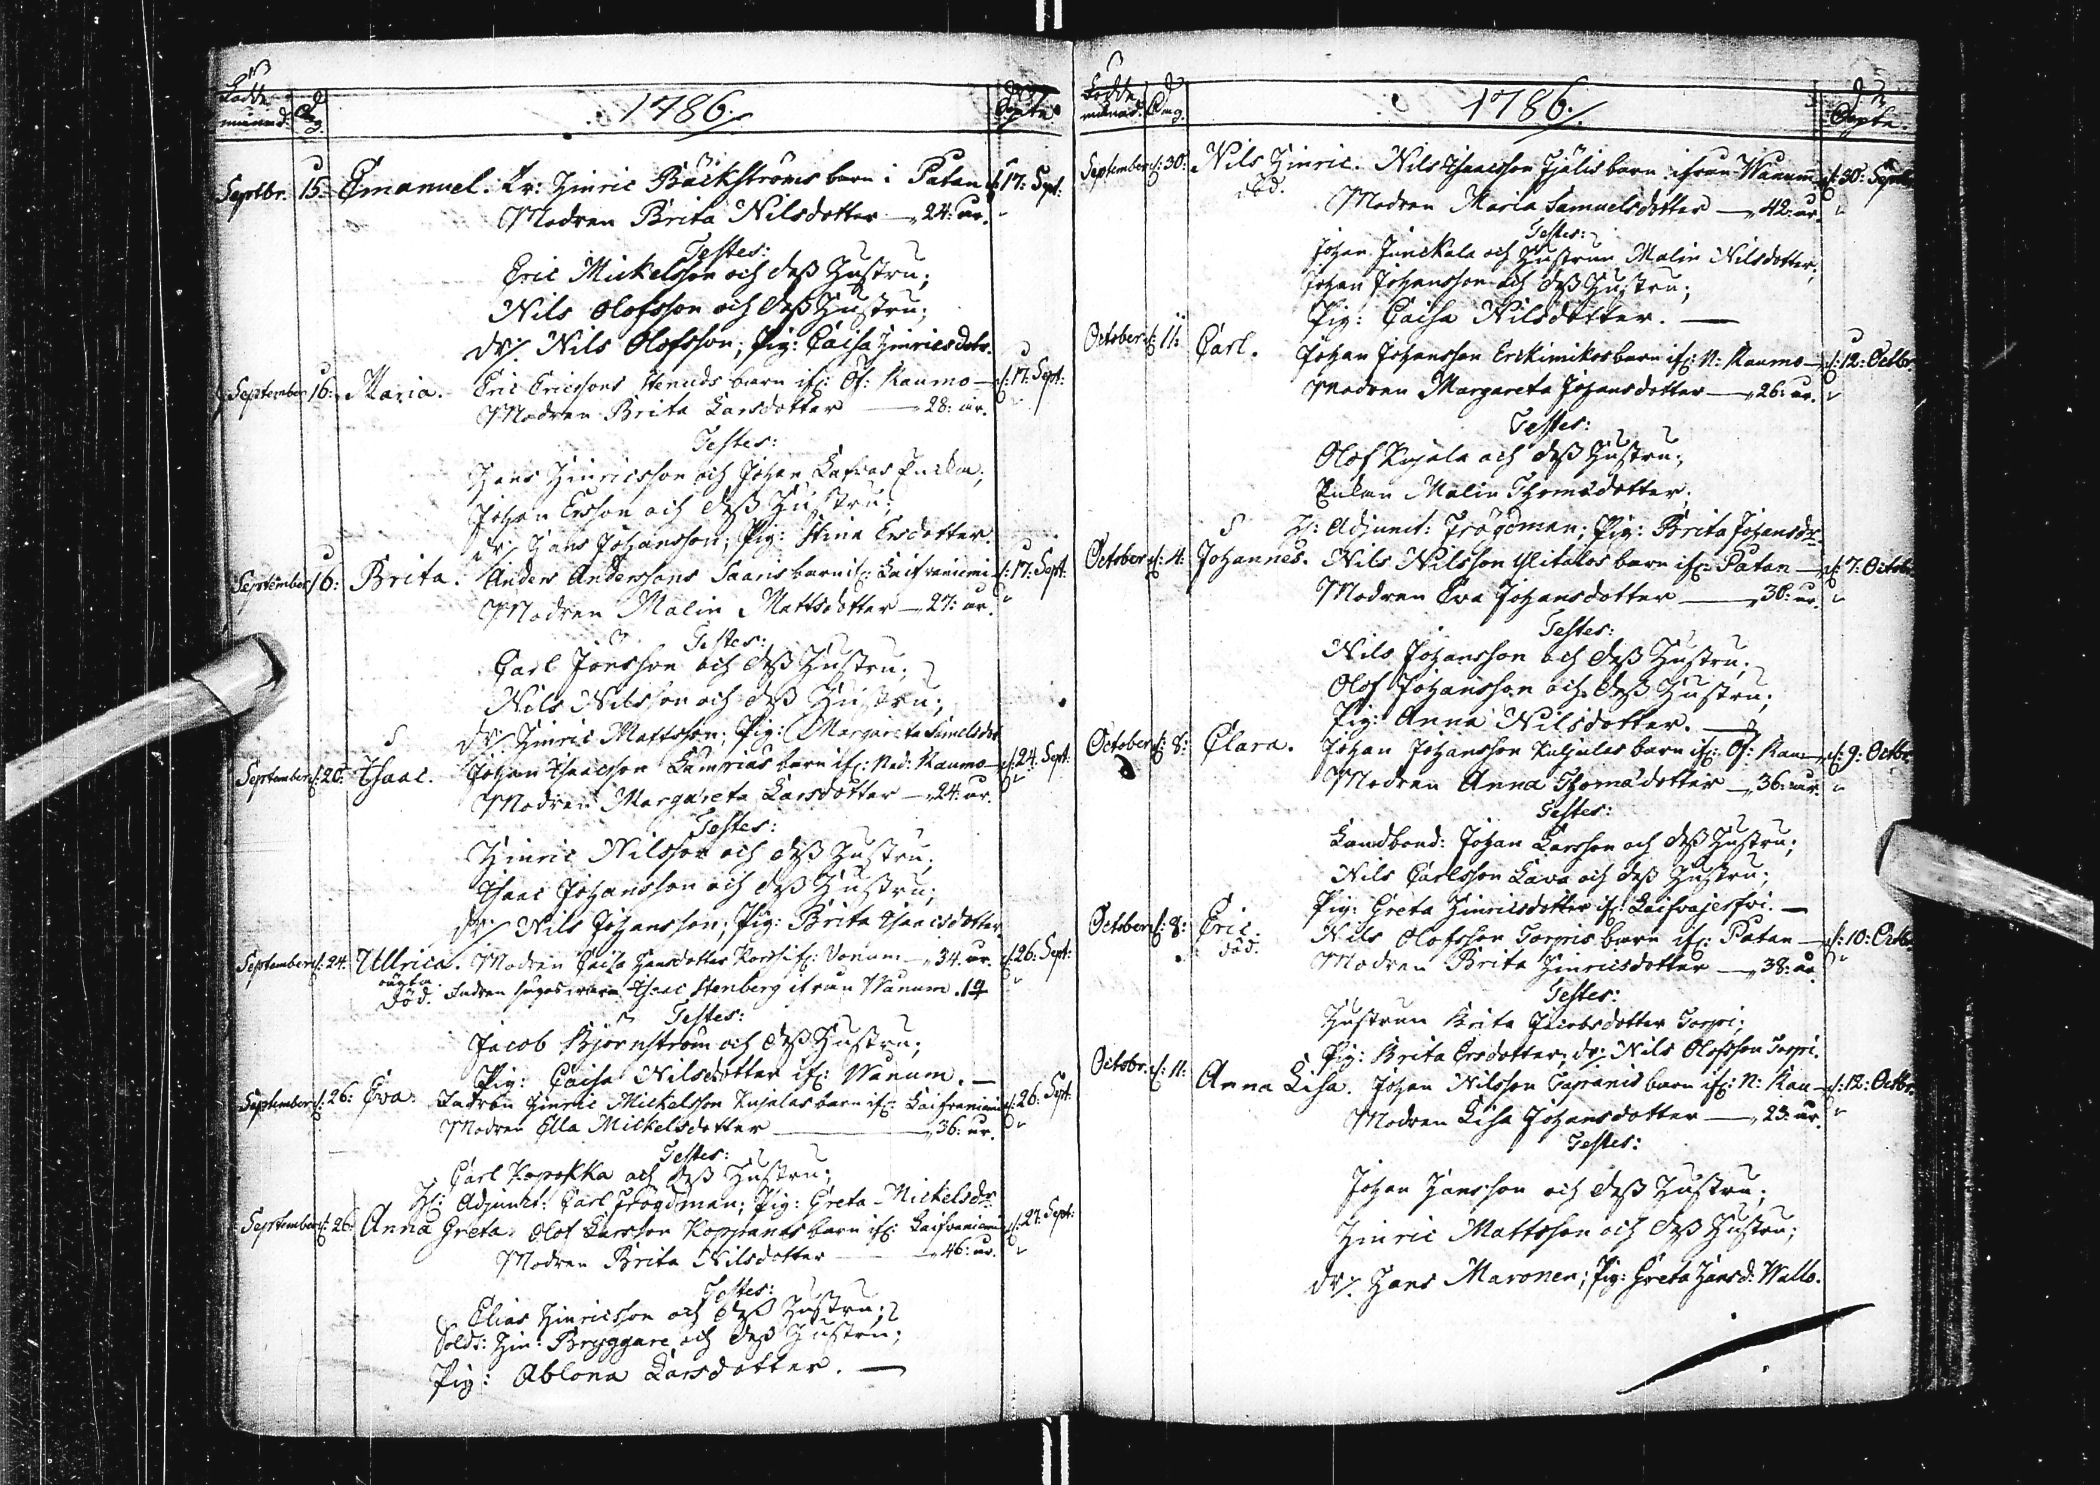 Födde
månad: Dag. 1786. Döpte.
Septbr. 15. Emanuel. Kr: Hinric Bäckströms barn i Patan d: 17: Sept:
Modren Brita Nilsdotter — 24: år.
Testes:
Eric Mickelsson och dess Hustru;
Nils Olofsson och dess Hustru;
dr: Nils Olofsson; Pig: Caisa Hinricsdotr.
September 16: Maria. Eric Ericssons Stenuds barn if: Öf: Kaumo — d: 17: Sept:
Modren Brita Larsdotter — 28: år.
Testes:
Hans Hinricsson och Johan Lafvas Enckia,
Johan Ersson och dess Hustru;
dr: Hans Johansson; Pig: Stina Ersdotter.
September 16: Brita. Anders Anderssons Saaris barn if: Kaifvaniemi d: 17: Sept:
Modren Malin Mattsdotter — 27: år.
Testes:
Carl Jönsson och dess Hustru;
Nils Nilsson och dess Hustru;
dr: Hinric Mattsson; Pig: Margareta Samelsdotr
September d: 20: Isaac. Johan Isaacsson Lamrias barn if: Ned: Kaumo — d: 24: Sept:
Modren Margareta Larsdotter — 24: år.
Testes:
Hinric Nilsson och dess Hustru;
Isaac Johansson och dess Hustru;
dr: Nils Johansson; Pig: Brita Isaacsdotter.
September d: 24: Ullrica. Modren Caisa Hansdotter if: Vanum — 34: år. d: 26: Sept:
oägta
död. Fadren säges wara Isaac Stenberg ifrån Wanum.
Testes:
Jacob Björnström och dess Hustru;
Pig: Caisa Nilsdotter if: Wanum. —
September d: 26: Eva. Fadren Hinric Mickelsson Kujalas barn if: Kaifvaniemi d: 26: Sept:
Modren Ella Mickelsdotter — 36: år.
Testes:
Carl Kopokka och dess Hustru;
H: Adjunct: Carl Frogdman; Pig: Greta Mickelsdr:
September d: 26: Anna Greta. Olof Larsson Koppanas barn if: Kaifvaniemi d: 27: Sept:
Modren Brita Nilsdotter — 46: år.
Testes:
Elias Hinricsson och dess Hustru;
Sold: Hin: Bryggare och dess Hustru;
Pig: Ablona Larsdotter. —
Födde
månad: Dag. 1786. Döpte.
September d: 30: Nils Hinric. Nils Isaacsson Hjälis barn ifrån Wanum d: 30: Septb:
död. Modren Maria Samuelsdotter — 42: år.
Testes:
Johan Junckala och Hustrun Malin Nilsdotter;
Johan Johansson och dess Hustru;
Pig: Caisa Nilsdotter. —
October d: 11: Carl. Johan Johansson Erckimikos barn if: N: Kaumo — d: 12: Octbr.
Modren Margareta Johansdotter — 26: år.
Testes:
Olof Kujala och dess Hustru;
Enkan Malin Thomædotter;
H: Adjunct: Frogdman; Pig: Brita Johansdr.
October d: 4: Johannes. Nils Nilsson Ylitalos barn if: Patan — d: 7: Octobr
Modren Eva Johansdotter — 38: år.
Testes:
Nils Johansson och dess Hustru;
Olof Johansson och dess Hustru;
Pig: Anna Nilsdotter. —
October d: 8: Clara. Johan Johansson Kuljulas barn if: Öf: Kau — d: 9: Octbr
Modren Anna Thomædotter — 36: år.
Testes:
Landbond: Johan Larsson och dess Hustru;
Nils Carlsson Lava och dess Hustru;
Pig: Greta Hinricsdotter if: Kaifvajerfvi. —
October d: 8: Eric. Nils Olofsson Torpis barn if: Patan — d: 10: Octb
död. Modren Brita Hinricsdotter — 38: år.
Testes:
Hustrun Brita Jacobsdotter Torpi;
Pig: Brita Ersdotter; dr: Nils Olofsson Torpi.
Octobr. d: 11: Anna Lisa. Johan Nilsson Tapanis barn if: N: Kau — d: 12: Octbr.
Modren Lisa Johansdotter — 23: år.
Testes:
Johan Hansson och dess Hustru;
Hinric Mattsson och dess Hustru;
dr: Hans Maronen; Pig: Greta Hansd: Wallo.